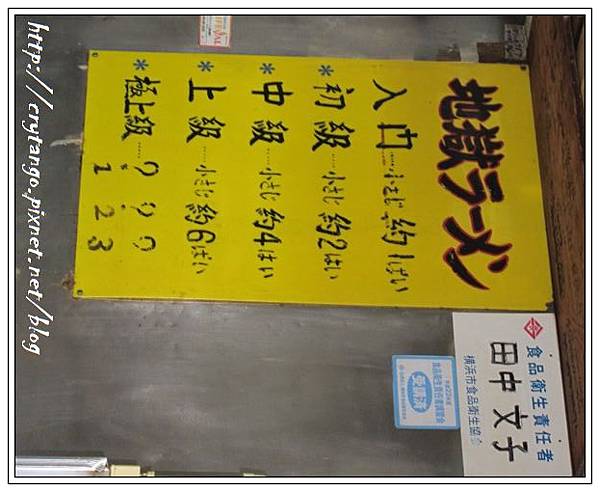 地獄ラーメン
入門……小さじ約1ぱい
*初級……小さじ約2はい
*中級……小さじ約4はい
*上級……小さじ約6ぱい
*極上級……???
123
食品衛生責任者
田中文子
横浜市食品衛生協会
食品衛生責任者講習会
受講済
http://crytango.pixnet.net/blog